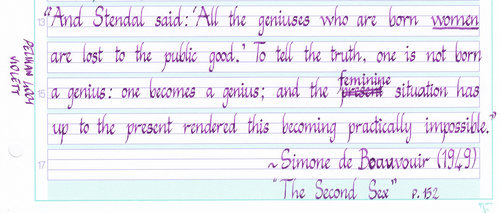 13 "And Stendal said: 'All the geniuses who are born women
are lost to the public good.' To tell the truth, one is not born
feminine
15 a genius: one becomes a genius; and the present situation has
up to the present rendered this becoming practically impossible."
17 ~Simone de Beauvouir (1949)
"The Second Sex" p. 152
PELIKAN 4001
VIOLETT